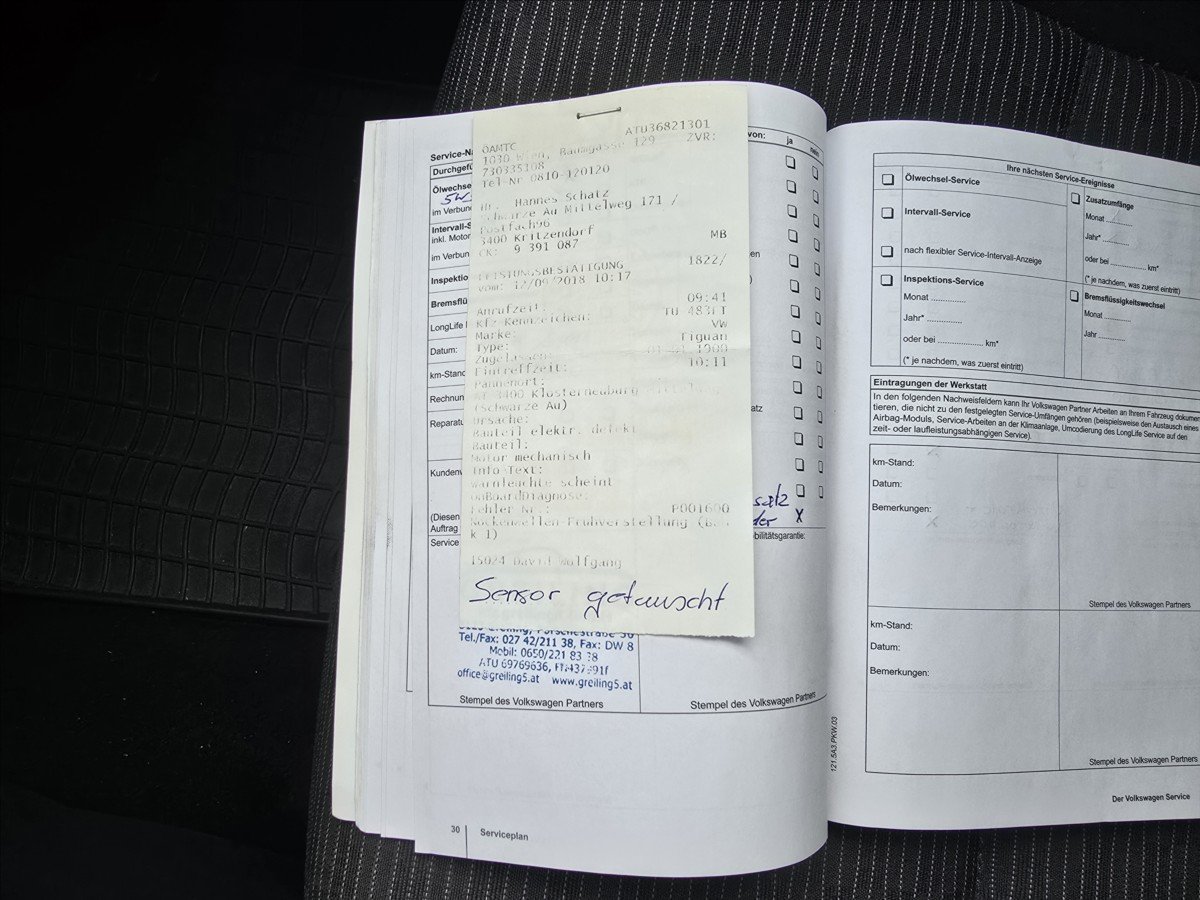 ATU36821301
ÖAMTC
1030 Wien, Baumgasse 129 ZVR:
730335108
Tel-Nr 0810-120120
Hr. Hannes Schatz
Schwarze Au Mittelweg 171 /
Postfach96
3400 Kritzendorf
CK: 9 391 087 MB
LEISTUNGSBESTÄTIGUNG 1822/
vom: 12/09/2018 10:17
Anrufzeit: 09:41
Kfz-Kennzeichen: TU 483FT
Marke: VW
Type: Tiguan
Zugelassen:
Eintreffzeit: 10:11
Pannenort:
AT 3400 Klosterneuburg
(Schwarze Au)
Ursache:
Bauteil elektr. defekt
Bauteil:
Motor mechanisch
Info-Text:
Warnleuchte scheint
OnBoardDiagnose:
Fehler Nr.: P001600
Nockenwellen-Frühverstellung (Ban
k 1)
15024 David Wolfgang
Sensor getauscht
Service-Na
Durchgefü
Ölwechsel
im Verbun
Intervall-S
inkl. Motor
im Verbun
Inspektio
Bremsflü
LongLife
Datum:
km-Stand
Rechnun
Reparatu
Kundenw
(Diesen
Auftrag
Service
von: ja nein
en
)
satz
satz
der X
bilitätsgarantie:
Tel./Fax: 027 42/211 38, Fax: DW 8
Mobil: 0650/221 83 38
ATU 69769636,
office@greiling5.at www.greiling5.at
Stempel des Volkswagen Partners
Stempel des Volkswagen Partners
30 Serviceplan
121.5A3.PKW.03
Ihre nächsten Service-Ereignisse
Ölwechsel-Service
Intervall-Service
nach flexibler Service-Intervall-Anzeige
Inspektions-Service
Monat ..............
Jahr* ..............
oder bei .................. km*
(* je nachdem, was zuerst eintritt)
Zusatzumfänge
Monat ..............
Jahr* ..............
oder bei .................. km*
(* je nachdem, was zuerst eintritt)
Bremsflüssigkeitswechsel
Monat ..............
Jahr ..............
Eintragungen der Werkstatt
In den folgenden Nachweisfeldern kann Ihr Volkswagen Partner Arbeiten an Ihrem Fahrzeug dokumen
tieren, die nicht zu den festgelegten Service-Umfängen gehören (beispielsweise den Austausch eines
Airbag-Moduls, Service-Arbeiten an der Klimaanlage, Umcodierung des LongLife Service auf den
zeit- oder laufleistungsabhängigen Service).
km-Stand:
Datum:
Bemerkungen:
Stempel des Volkswagen Partners
km-Stand:
Datum:
Bemerkungen:
Stempel des Volkswagen Partners
Der Volkswagen Service